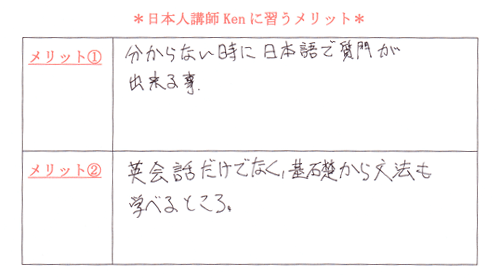 ＊日本人講師 Ken に習うメリット＊
メリット①
分からない時に日本語で質問が
出来る事.
メリット②
英会話だけでなく,基礎から文法も
学べるところ。